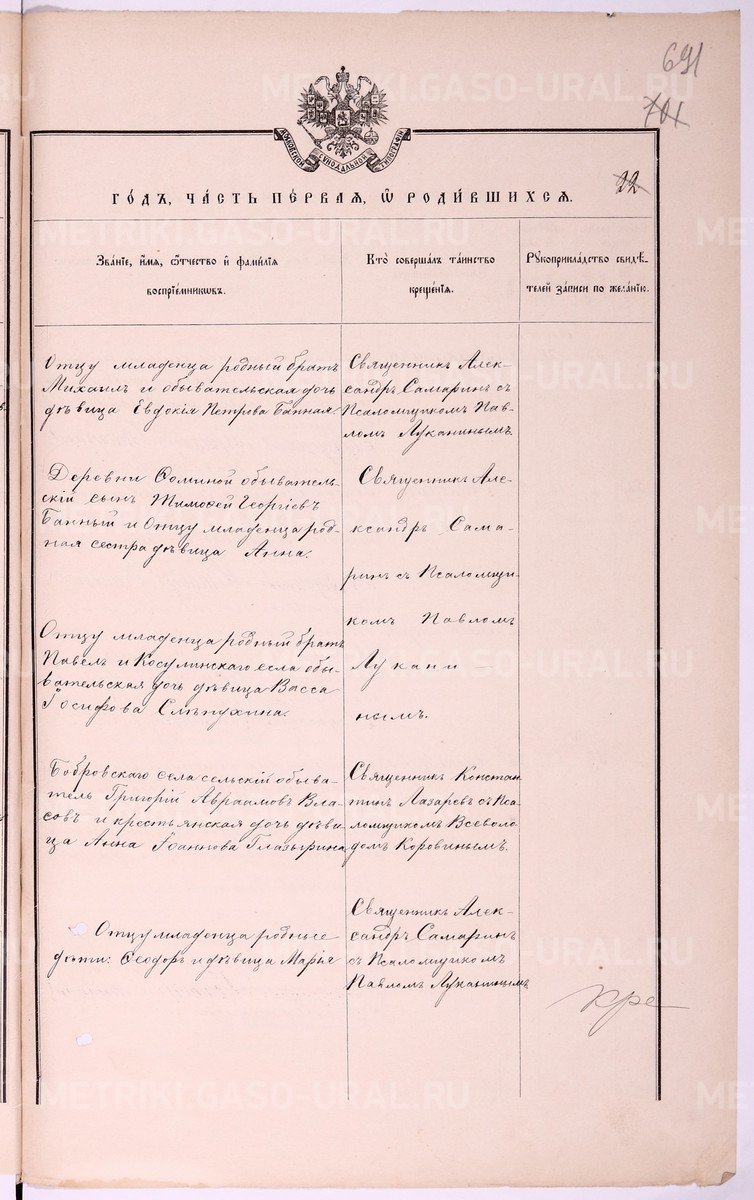 691
701
МОСКОВСКОЙ СѴНОДАЛЬНОЙ ТИПОГРАФІИ
22
ГО́ДЪ, ЧА́СТЬ ПЕ́РВАЯ, Ѡ҆ РОДИ́ВШИХСЯ.
Зва́нїе, и҆́мя, ѻ҆́тчество и҆ фами́лїя
воспрїе́мникѡвъ.
Кто̀ соверша́лъ та́инство
креще́нїя.
Рꙋкоприкла́дство свидѣ́-
телей за́писи по жела́нїю.
Отцу младенца родный братъ
Михаилъ и обывательская дочь
дѣвица Евдокія Петрова Банная.
Священникъ Алек-
сандръ Самаринъ съ
Псаломщикомъ Пав-
ломъ Луканинымъ.
Деревни Ѳоминой обыватель-
скій сынъ Тимоѳей Георгіевъ
Банный и Отцу младенца род-
ная сестра дѣвица Анна.
Священникъ Але-
ксандръ Сама-
ринъ съ Псаломщи-
комъ Павломъ
Лукани-
нымъ.
Отцу младенца родный братъ
Павелъ и Косулинскаго села обы-
вательская дочь дѣвица Васса
Іосифова Слѣпухина.
Бобровскаго села сельскій обыва-
тель Григорій Авраамовъ Вла-
совъ и крестьянская дочь дѣви-
ца Анна Іоаннова Глазырина
Священникъ Констан-
тинъ Лазаревъ съ Пса-
ломщикомъ Всеволо-
домъ Коровинымъ.
Отцу младенца родные
дѣти: Ѳеодоръ и дѣвица Марья
Священникъ Алек-
сандръ Самаринъ
съ Псаломщикомъ
Павломъ Луканинымъ
кре
METRIKI.GASO-URAL.RU